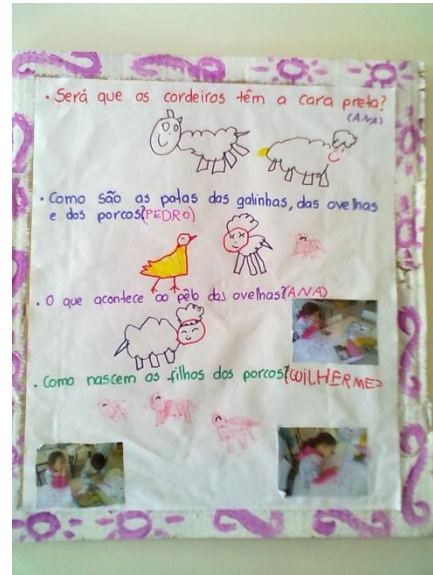 • Será que os cordeiros têm a cara preta?
(ANA)
• Como são as patas das galinhas, das ovelhas
e dos porcos?(PEDRO)
• O que acontece ao pêlo das ovelhas?(ANA)
• Como nascem os filhos dos porcos?(GUILHERME)